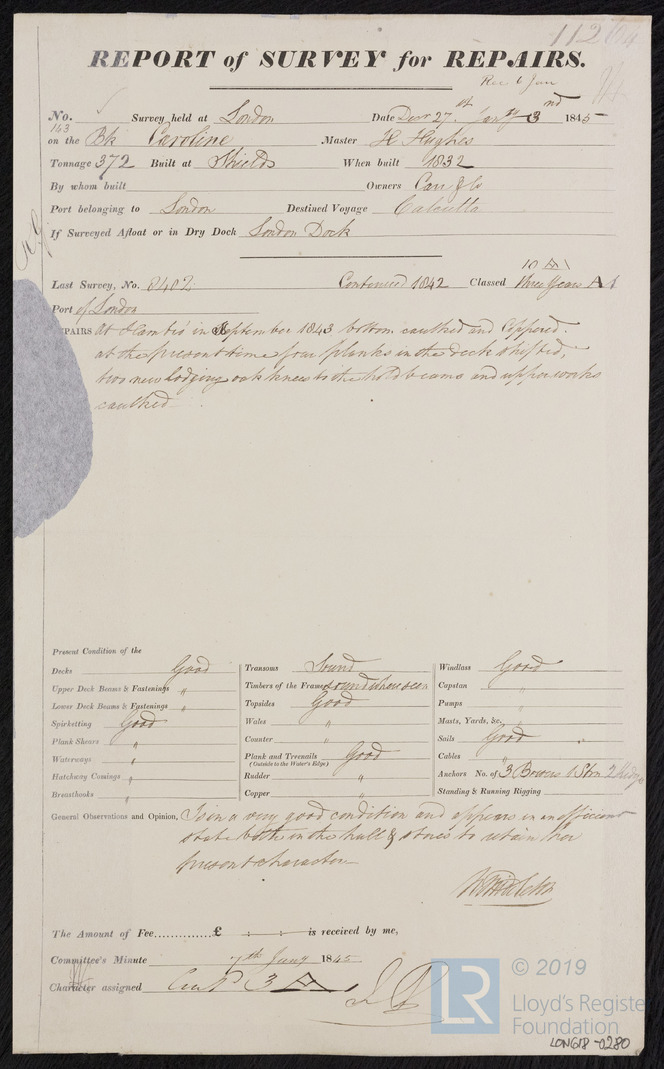 112
REPORT of SURVEY for REPAIRS.
Rec 6 Jan
No. 163 Survey held at London Date Decr 27th Jany 3rd 1845
on the Bk Caroline Master H Hughes
Tonnage 372 Built at Shields When built 1832
By whom built Owners Carr & Co
Port belonging to London Destined Voyage Calcutta
If Surveyed Afloat or in Dry Dock London Dock
10 A
Last Survey, No. 8402 Continued 1842 Classed three Years A 1
Port of London
REPAIRS at in September 1843 bottom caulked and Coppered.
at the present time four planks in the deck shifted,
two new lodging oak knees to the hold beams and upper works
caulked
Present Condition of the
Decks Good
Upper Deck Beams & Fastenings "
Lower Deck Beams & Fastenings "
Spirketting Good
Plank Sheers "
Waterways "
Hatchway Comings "
Breasthooks "
Transoms Sound
Timbers of the Frame sound where seen
Topsides Good
Wales "
Counter "
Plank and Treenails Good
(Outside to the Water's Edge)
Rudder "
Copper "
Windlass Good
Capstan "
Pumps "
Masts, Yards, &c. "
Sails Good
Cables "
Anchors No. of 3 Bowers 1 Strm 2 Kedge
Standing & Running Rigging
General Observations and Opinion, Is in a very good condition and appears in an efficient
state both in the hull & stores to retain her
present character
The Amount of Fee............£ : : is received by me,
Committee's Minute 7th Jany 1845
Character assigned Contd 3 A
LR
© 2019
Lloyd's Register
Foundation
LON618-0280